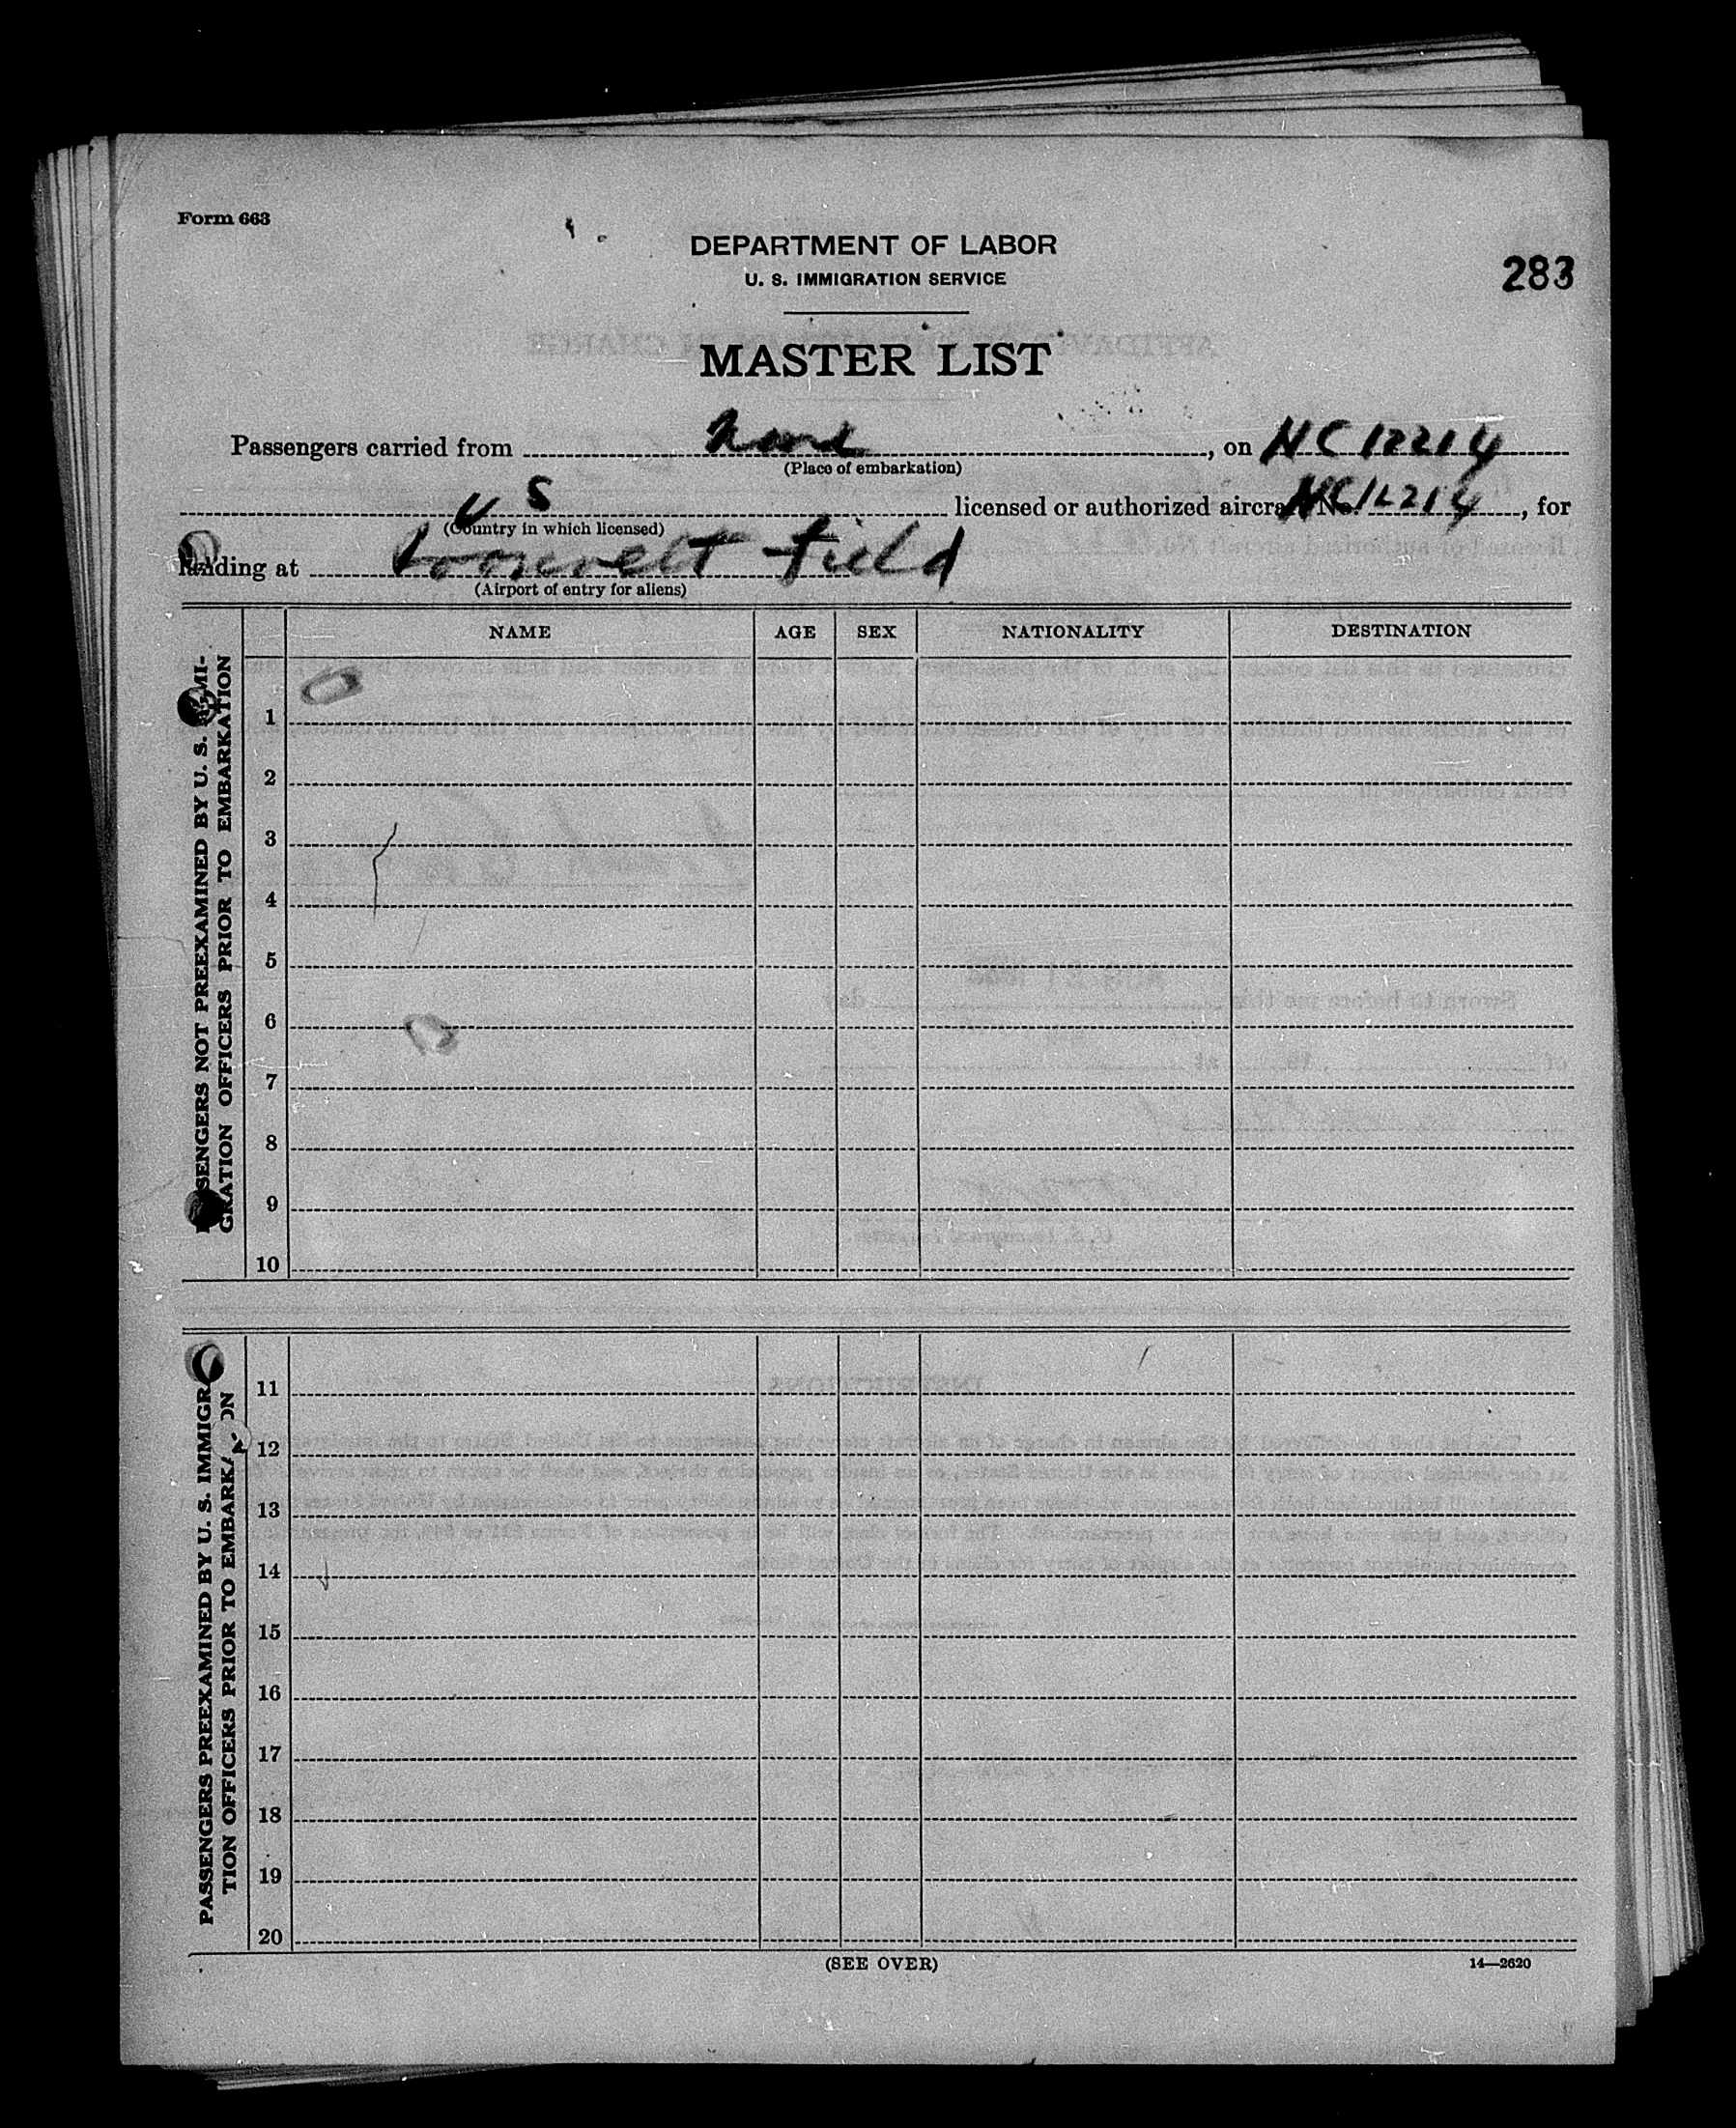 Form 663
DEPARTMENT OF LABOR
U. S. IMMIGRATION SERVICE
283
MASTER LIST
Passengers carried from None, on NC12214
(Place of embarkation)
U S licensed or authorized aircraft No. NC12214, for
(Country in which licensed)
landing at Roosevelt Field
(Airport of entry for aliens)
NAME AGE SEX NATIONALITY DESTINATION
PASSENGERS NOT PREEXAMINED BY U. S. IMMI-
GRATION OFFICERS PRIOR TO EMBARKATION
1
2
3
4
5
6
7
8
9
10
PASSENGERS PREEXAMINED BY U. S. IMMIGRA-
TION OFFICERS PRIOR TO EMBARKATION
11
12
13
14
15
16
17
18
19
20
(SEE OVER)
14—2620